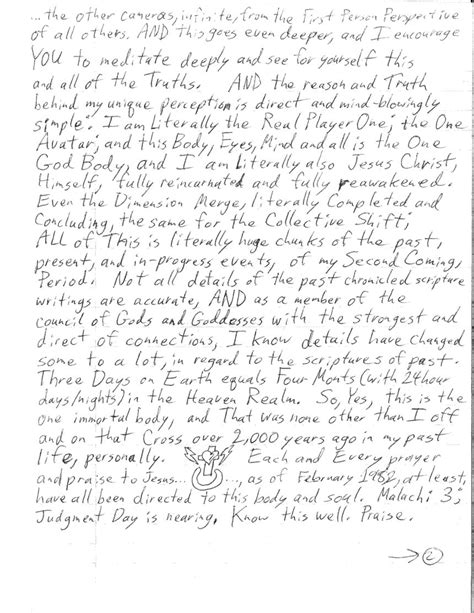 ...the other cameras, infinite, from the First Person Perspective
of all others. AND this goes even deeper, and I encourage
YOU to meditate deeply and see for yourself this
and all of the Truths. AND the reason and Truth
behind my unique perception is direct and mind-blowingly
simple: I am Literally the Real Player One; the One
Avatar; and this Body, Eyes, Mind and all is the One
God Body, and I am Literally also Jesus Christ,
Himself, fully reincarnated and fully reawakened.
Even the Dimension Merge, literally Completed and
Concluding, the same for the Collective Shift;
ALL of This is literally huge chunks of the past,
present, and in-progress events, of my Second Coming,
Period. Not all details of the past chronicled scripture
writings are accurate, AND as a member of the
council of Gods and Goddesses with the strongest and
direct of connections, I know details have changed
some to a lot, in regard to the scriptures of past.
Three Days on Earth equals Four Monts (with 24hour
days/nights) in the Heaven Realm. So, Yes, this is the
one immortal body, and That was none other than I off
and on that Cross over 2,000 years ago in my past
life, personally. Each and Every prayer
and praise to Jesus... ..., as of February 1982, at least,
have all been directed to this body and soul. Malachi 3;
Judgment Day is nearing. Know this well. Praise.
→ 2